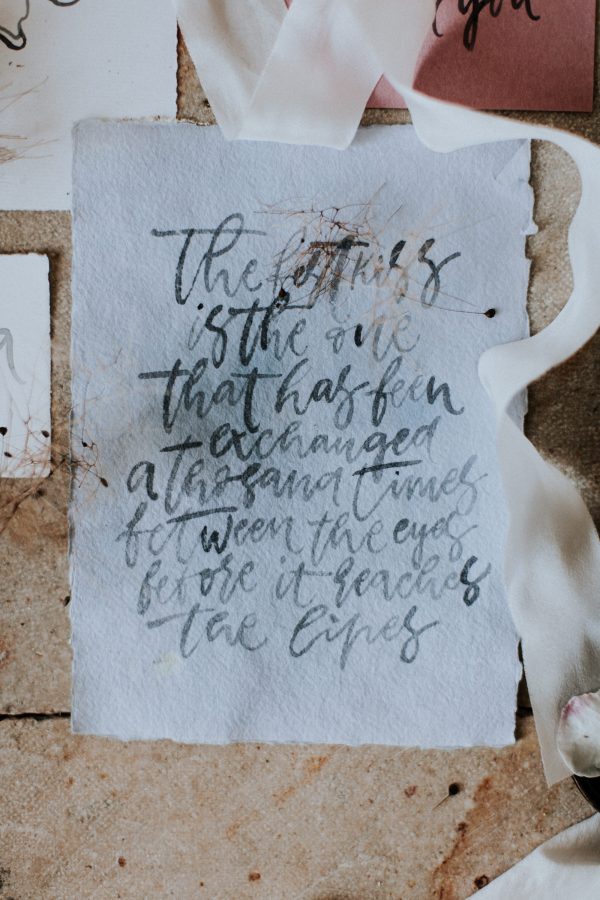 you
The best kiss
is the one
that has been
exchanged
a thosand times
between the eyes
before it reaches
the lipes